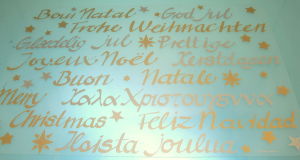 Bon Natal God Jul
Frohe Weihnachten
Glædelig Jul Prettige
Joyeux Noël Kerstdagen
Buon Natale
Merry Χαλα Χριστουγεννα
Christmas Feliz Navidad
Haista Joulua